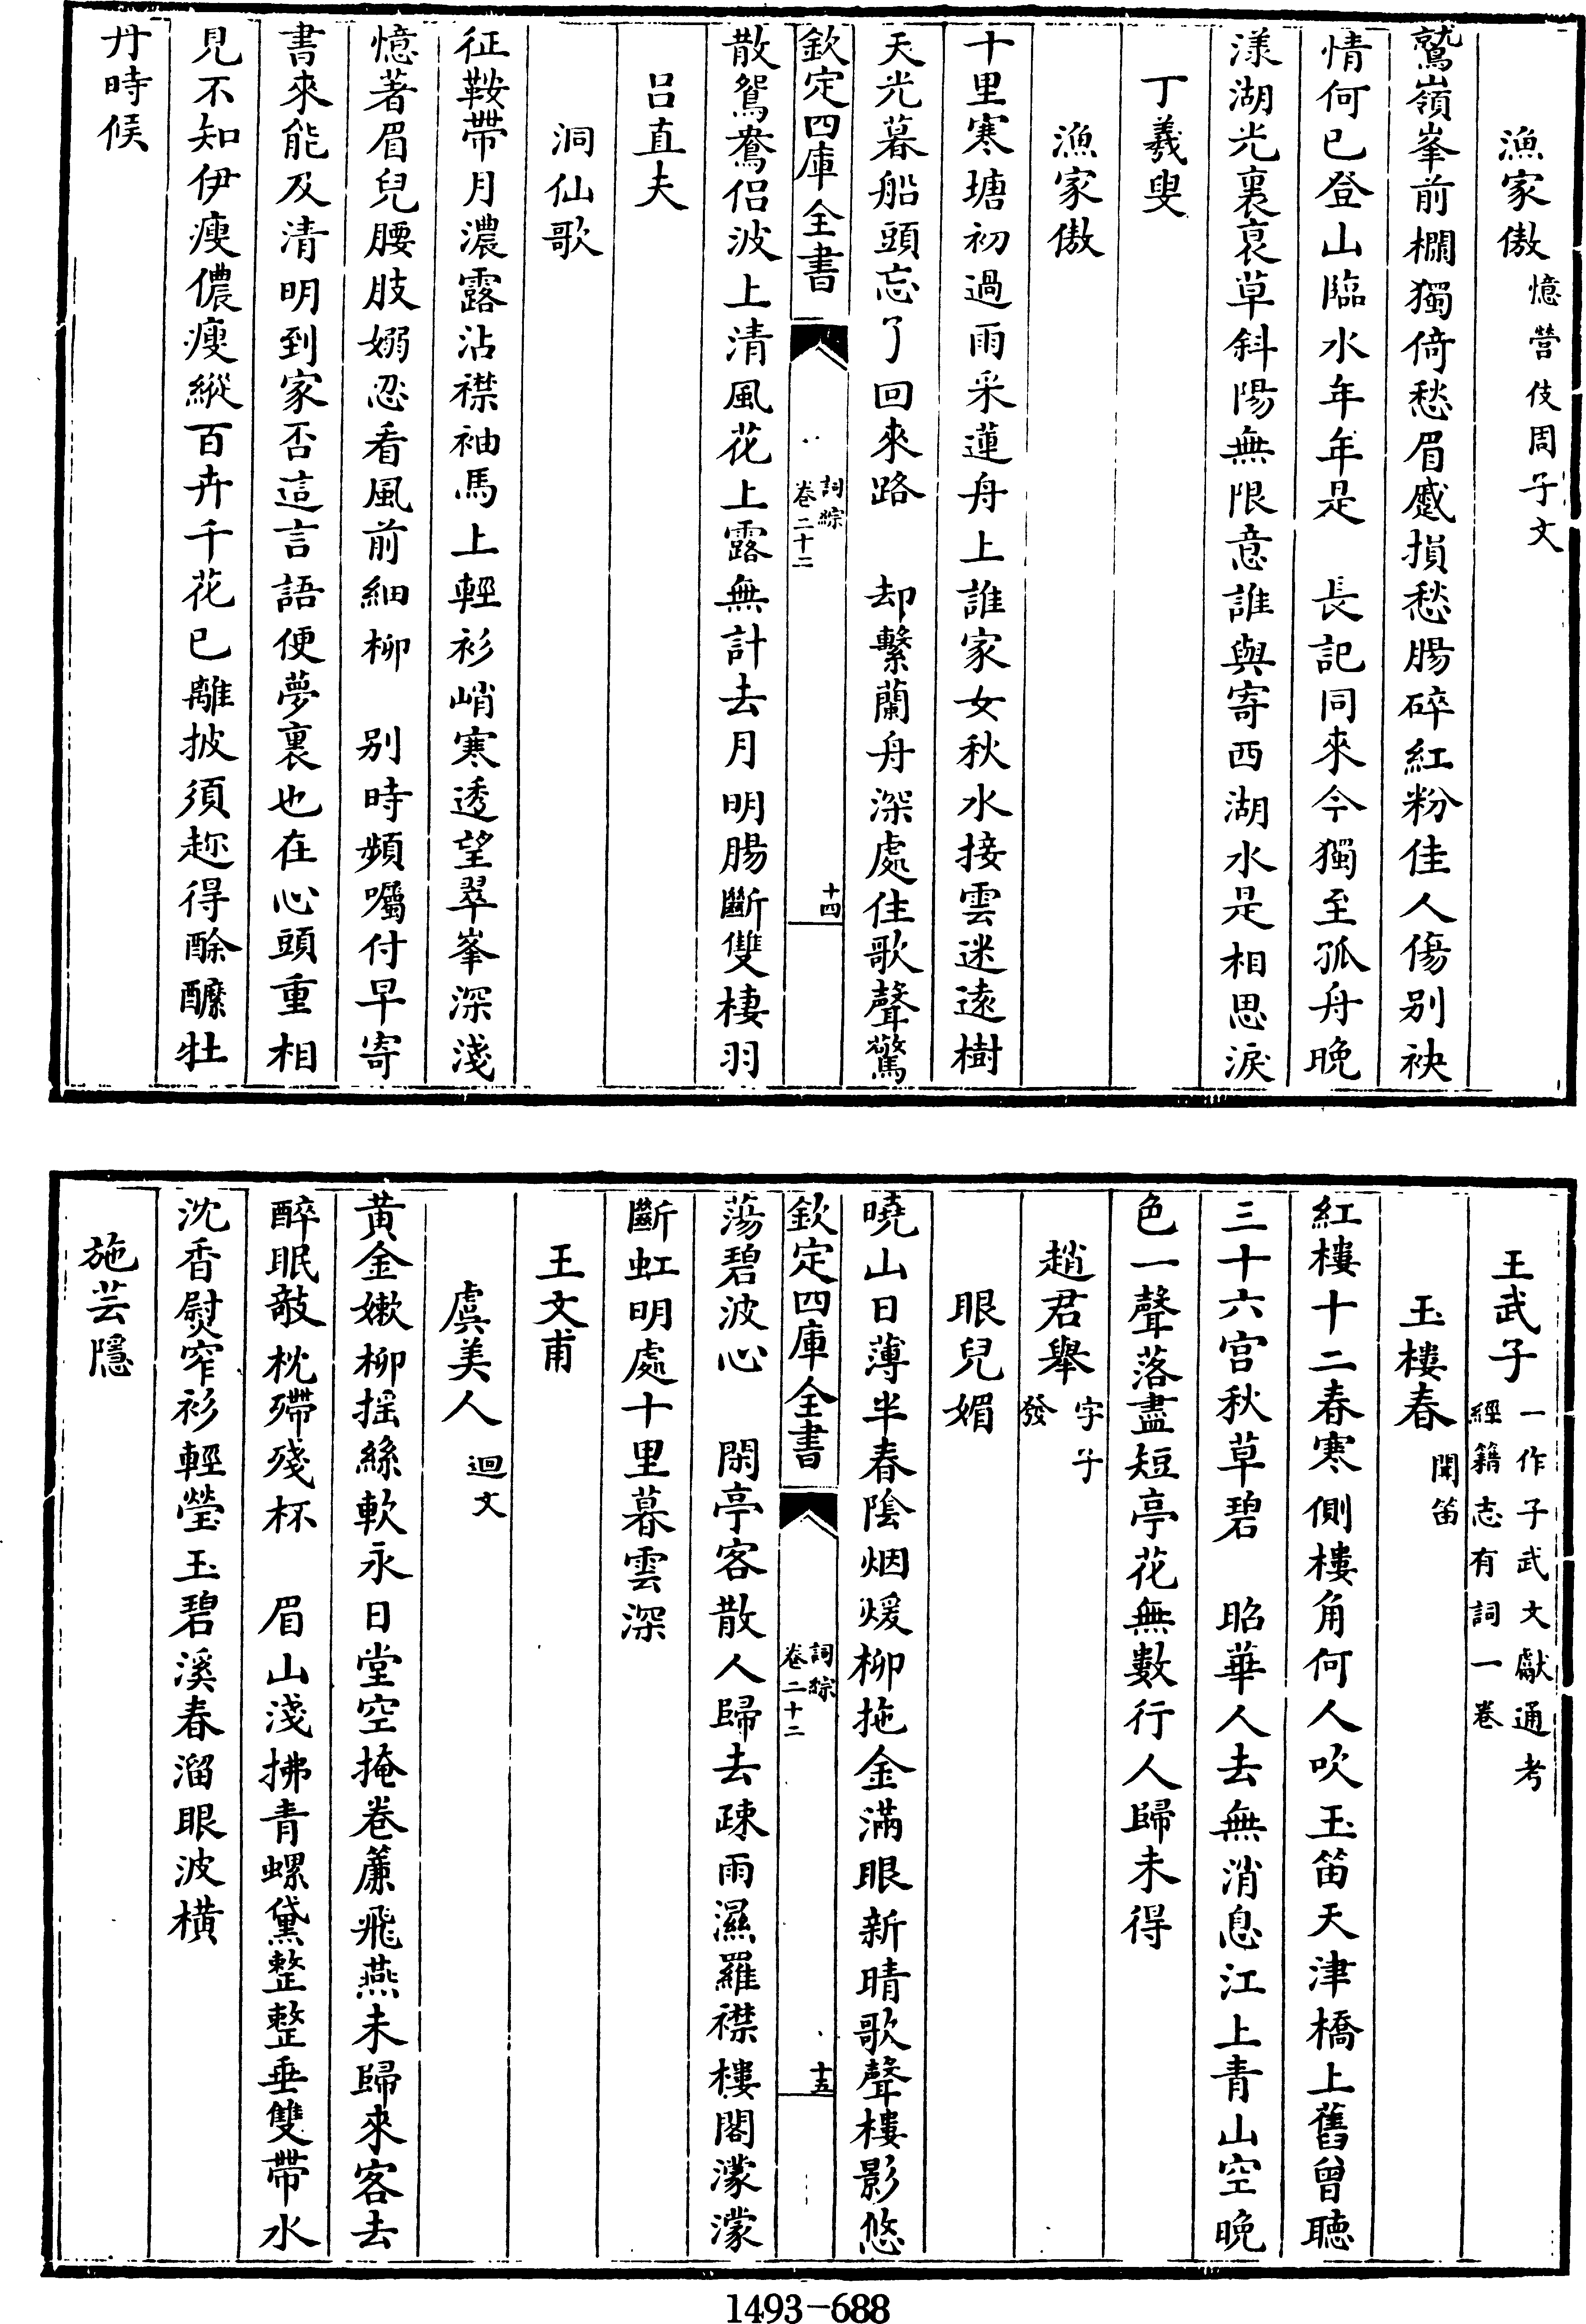 漁家傲憶營伎周子文
鷲嶺峯前欄獨倚愁眉蹙損愁腸碎紅粉佳人傷别袂
情何已登山臨水年年是　長記同來今獨至孤舟晚
漾湖光裏衰草斜陽無限意誰與寄西湖水是相思淚
丁羲叟
漁家傲
十里寒塘初過雨采蓮舟上誰家女秋水接雲迷遠樹
天光暮船頭忘了回來路　却繫蘭舟深處住歌聲驚
欽定四庫全書
詞綜
卷二十二
十四
散鴛鴦侶波上清風花上露無計去月明腸斷雙棲羽
吕直夫
洞仙歌
征鞍帶月濃露沾襟袖馬上輕衫峭寒透望翠峯深淺
憶著眉兒腰肢嫋忍看風前細柳　别時頻囑付早寄
書來能及清明到家否這言語便夢裏也在心頭重相
見不知伊瘦儂瘦縱百卉千花已離披須趂得酴醾牡
丹時候
王武子一作子武文獻通考
經籍志有詞一卷
玉樓春聞笛
紅樓十二春寒側樓角何人吹玉笛天津橋上舊曾聴
三十六宫秋草碧　昭華人去無消息江上青山空晚
色一聲落盡短亭花無數行人歸未得
趙君舉字子
發
眼兒媚
曉山日薄半春隂烟煖柳拖金滿眼新晴歌聲樓影悠
欽定四庫全書
詞綜
卷二十二
十五
蕩碧波心　閑亭客散人歸去疎雨濕羅襟樓閣濛濛
斷虹明處十里暮雲深
王文甫
虞美人迴文
黄金嫰柳摇絲軟永日堂空掩卷簾飛燕未歸來客去
醉眠敧枕殢殘杯　眉山淺拂青螺黛整整垂雙帶水
沈香熨窄衫輕瑩玉碧溪春溜眼波横
施芸隱
1493-688